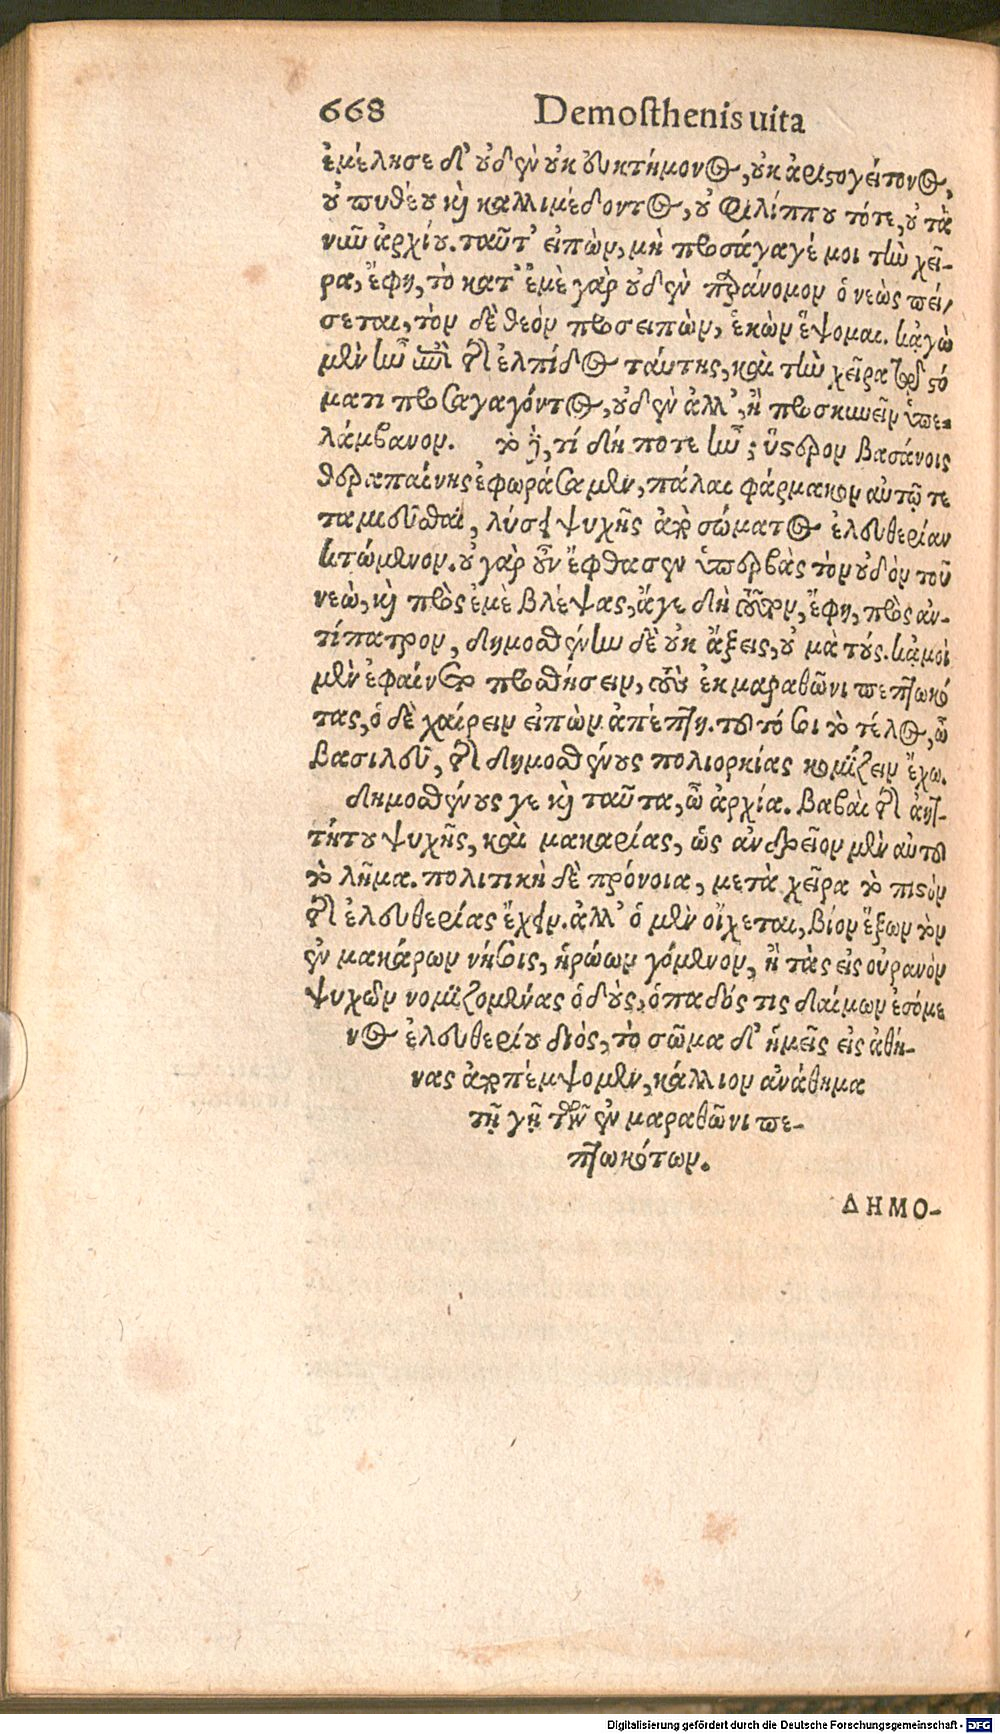 668 Demosthenis uita
ἐμέλησε δ' οὐδὲν οὐκ εὐκτήμονος, οὐκ ἀριστογείτονος,
οὐ πυθέου καὶ καλλιμέδοντος, οὐ φιλίππου τότε, οὐ τὰ
νῦν ἀρχίου. ταῦτ' εἰπὼν, μὴ προσάγαγέ μοι τὴν χεῖ-
ρα, ἔφη, τὸ κατ' ἐμὲ γὰρ οὐδὲν παράνομον ὁ νεὼς πεί-
σεται, τὸν δὲ θεὸν προσειπὼν, ἑκὼν ἕψομαι. κἀγὼ
μὲν ἦν ἐπὶ τῆς ἐλπίδος ταύτης, καὶ τὴν χεῖρα τῷ στό
ματι προσαγαγόντος, οὐδὲν ἀλλ', ἢ προσκυνεῖν ὑπε-
λάμβανον. τὸ δὲ, τί δή ποτε ἦν; ὕστερον βασάνοις
θεραπαίνης ἐφωράσαμεν, πάλαι φάρμακον αὐτῷ τε
ταμιεῦσθαι, λύσει ψυχῆς ἀπὸ σώματος ἐλευθερίαν
κτώμενον. οὐ γὰρ οὖν ἔφθασεν ὑπερβὰς τὸν οὐδὸν τοῦ
νεὼ, καὶ πρὸς ἐμὲ βλέψας, ἄγε δὴ τοῦτον, ἔφη, πρὸς ἀν-
τίπατρον, δημοσθένην δὲ οὐκ ἄξεις, οὐ μὰ τούς. κᾀμοὶ
μὲν ἐφαίνετο προσθήσειν, τοὺς ἐκ μαραθῶνι πεπτωκό
τας, ὁ δὲ χαίρειν εἰπὼν ἀπέπτη. τοῦτό σοι τὸ τέλος, ὦ
βασιλεῦ, τῆς δημοσθένους πολιορκίας κομίζειν ἔχω.
δημοσθένους γε καὶ ταῦτα, ὦ ἀρχία. βαβαὶ τῆς ἀητ-
τήτου ψυχῆς, καὶ μακαρίας, ὡς ἀνδρεῖον μὲν αὐτοῦ
τὸ λῆμα. πολιτικὴ δὲ πρόνοια, μετὰ χεῖρα τὸ πιστὸν
τῆς ἐλευθερίας ἔχειν. ἀλλ' ὁ μὲν οἴχεται, βίον ἕξων τὸν
ἐν μακάρων νήσοις, ἡρώων γόμενον, ἢ τὰς εἰς οὐρανὸν
ψυχῶν νομιζομένας ὁδοὺς, ὀπαδός τις δαίμων ἐσόμε
νος ἐλευθερίου διὸς, τὸ σῶμα δ' ἡμεῖς εἰς ἀθή-
νας ἀποπέμψομεν, κάλλιον ἀνάθημα
τῇ γῇ τῶν ἐν μαραθῶνι πε-
πτωκότων.
ΔΗΜΟ-
Digitalisierung gefördert durch die Deutsche Forschungsgemeinschaft - DFG